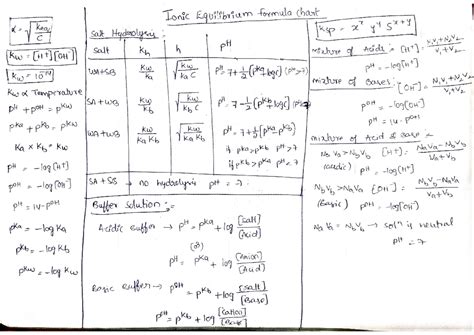 Ionic Equilibrium formula chart
α = √(Ka/C)
Kw = [H+][OH-]
Kw = 10^-14
Kw α Temperature
pH + pOH = pKw
pKa + pKb = pKw
Ka x Kb = Kw
pH = -log[H+]
pOH = -log[OH-]
pH = 14 - pOH
pKa = -log Ka
pKb = -log Kb
pKw = -log Kw
Salt Hydrolysis:
Salt Kh h pH
WA+SB Kw/Ka √(Kw/Ka C) pH = 7 + 1/2 [pKa + log C] (pH > 7)
SA + WB pH = 7 - 1/2 [pKb + log C]
WA + WB Kw/Ka Kb √(Kw/Ka Kb) pH = 7 + 1/2 [pKa - pKb]
if pKa > pKb pH > 7
if pKb > pKa pH < 7
SA + SB → no hydrolysis pH = 7
Buffer Solution :-
Acidic Buffer → pH = pKa + log [Salt]/[Acid]
(or)
pH = pKa + log [Anion]/[Acid]
Basic Buffer → pOH = pKb + log [Salt]/[Base]
pOH = pKb + log [Cation]/[Base]
Ksp = x^x y^y S^x+y
mixture of Acids : [H+] = N1V1+N2V2/V1+V2
pH = -log[H+]
mixture of Bases : [OH-] = N1V1+N2V2/V1+V2
pOH = -log[OH-]
pH = 14 - pOH
mixture of Acid & Base
NaVa > NbVb [H+] = NaVa - NbVb/Va + Vb
(acidic) pH = -log[H+]
NbVb > NaVa [OH-] = NbVb - NaVa/Va + Vb
(Basic) pOH = -log[OH-]
NaVa = NbVb → Sol^n is neutral
pH = 7